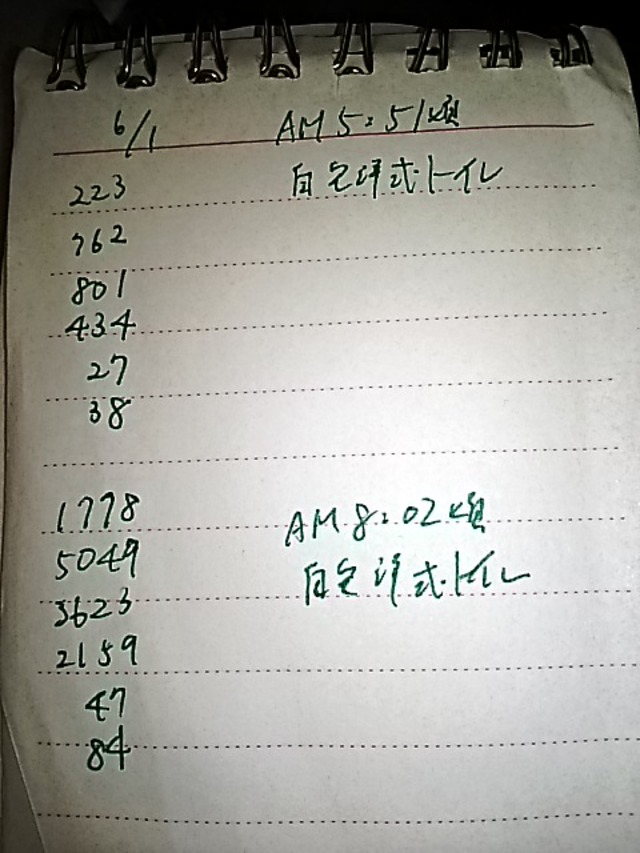 6/1 AM5:51頃
223 自宅洋式トイレ
762
801
434
27
38
1778 AM8:02頃
5049 自宅洋式トイレ
3623
2159
47
84